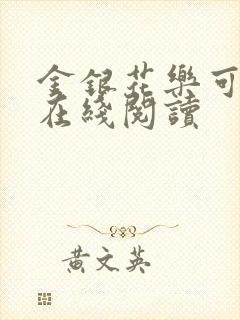 金銀花樂可
在綫閱讀
黃文英